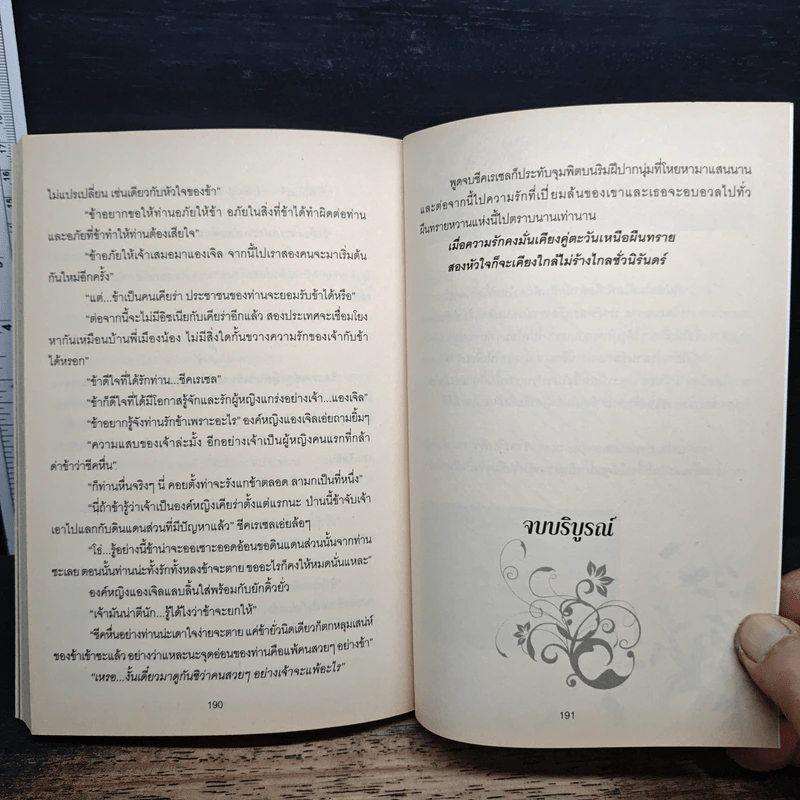 ไม่แปรเปลี่ยน เช่นเดียวกับหัวใจของข้า"
"ข้าอยากขอให้ท่านอภัยให้ข้า อภัยในสิ่งที่ข้าได้ทำผิดต่อท่าน
และอภัยที่ข้าทำให้ท่านต้องเสียใจ"
"ข้าอภัยให้เจ้าเสมอมาแองเจิล จากนี้ไปเราสองคนจะมาเริ่มต้น
กันใหม่อีกครั้ง"
"แต่...ข้าเป็นคนเคียร่า ประชาชนของท่านจะยอมรับข้าได้หรือ"
"ต่อจากนี้จะไม่มีอิซเนียกับเคียร่าอีกแล้ว สองประเทศจะเชื่อมโยง
หากันเหมือนบ้านพี่เมืองน้อง ไม่มีสิ่งใดกั้นขวางความรักของเจ้ากับข้า
ได้หรอก"
"ข้าดีใจที่ได้รักท่าน...ชีคเรเซล"
"ข้าก็ดีใจที่ได้มีโอกาสรู้จักและรักผู้หญิงแกร่งอย่างเจ้า...แองเจิล"
"ข้าอยากรู้จังท่านรักข้าเพราะอะไร" องค์หญิงแองเจิลเอ่ยถามยิ้มๆ
"ความแสบของเจ้าล่ะมั้ง อีกอย่างเจ้าเป็นผู้หญิงคนแรกที่กล้า
ด่าข้าว่าชีคหื่น"
"ก็ท่านหื่นจริงๆ นี่ คอยตั้งท่าจะรังแกข้าตลอด ลามกเป็นที่หนึ่ง"
"นี่ถ้าข้ารู้ว่าเจ้าเป็นองค์หญิงเคียร่าตั้งแต่แรกนะ ป่านนี้ข้าจับเจ้า
เอาไปแลกกับดินแดนส่วนที่มีปัญหาแล้ว" ชีคเรเซลเอ่ยล้อๆ
"โธ่...รู้อย่างนี้ข้าน่าจะออเซาะออดอ้อนขอดินแดนส่วนนั้นจากท่าน
ซะเลย ตอนนั้นท่านน่ะทั้งรักทั้งหลงข้าจะตาย ขออะไรก็คงให้หมดนั่นแหละ"
องค์หญิงแองเจิลแลบลิ้นใส่พร้อมกับยักคิ้วยั่ว
"เจ้ามันน่าตีนัก...รู้ได้ไงว่าข้าจะยกให้"
"ชีคหื่นอย่างท่านน่ะเดาใจง่ายจะตาย แค่ข้ายั่วนิดเดียวก็ตกหลุมเสน่ห์
ของข้าเข้าซะแล้ว อย่างว่าแหละนะจุดอ่อนของท่านคือแพ้คนสวยๆ อย่างข้า"
"เหรอ...งั้นเดี๋ยวมาดูกันซิว่าคนสวยๆ อย่างเจ้าจะแพ้อะไร"
190
พูดจบชีคเรเซลก็ประทับจุมพิตบนริมฝีปากนุ่มที่โหยหามาแสนนาน
และต่อจากนี้ไปความรักที่เปี่ยมล้นของเขาและเธอจะอบอวลไปทั่ว
ผืนทรายหวานแห่งนี้ไปตราบนานเท่านาน
เมื่อความรักคงมั่นเคียงคู่ตะวันเหนือผืนทราย
สองหัวใจก็จะเคียงใกล้ไม่ร้างไกลชั่วนิรันดร์
จบบริบูรณ์
191